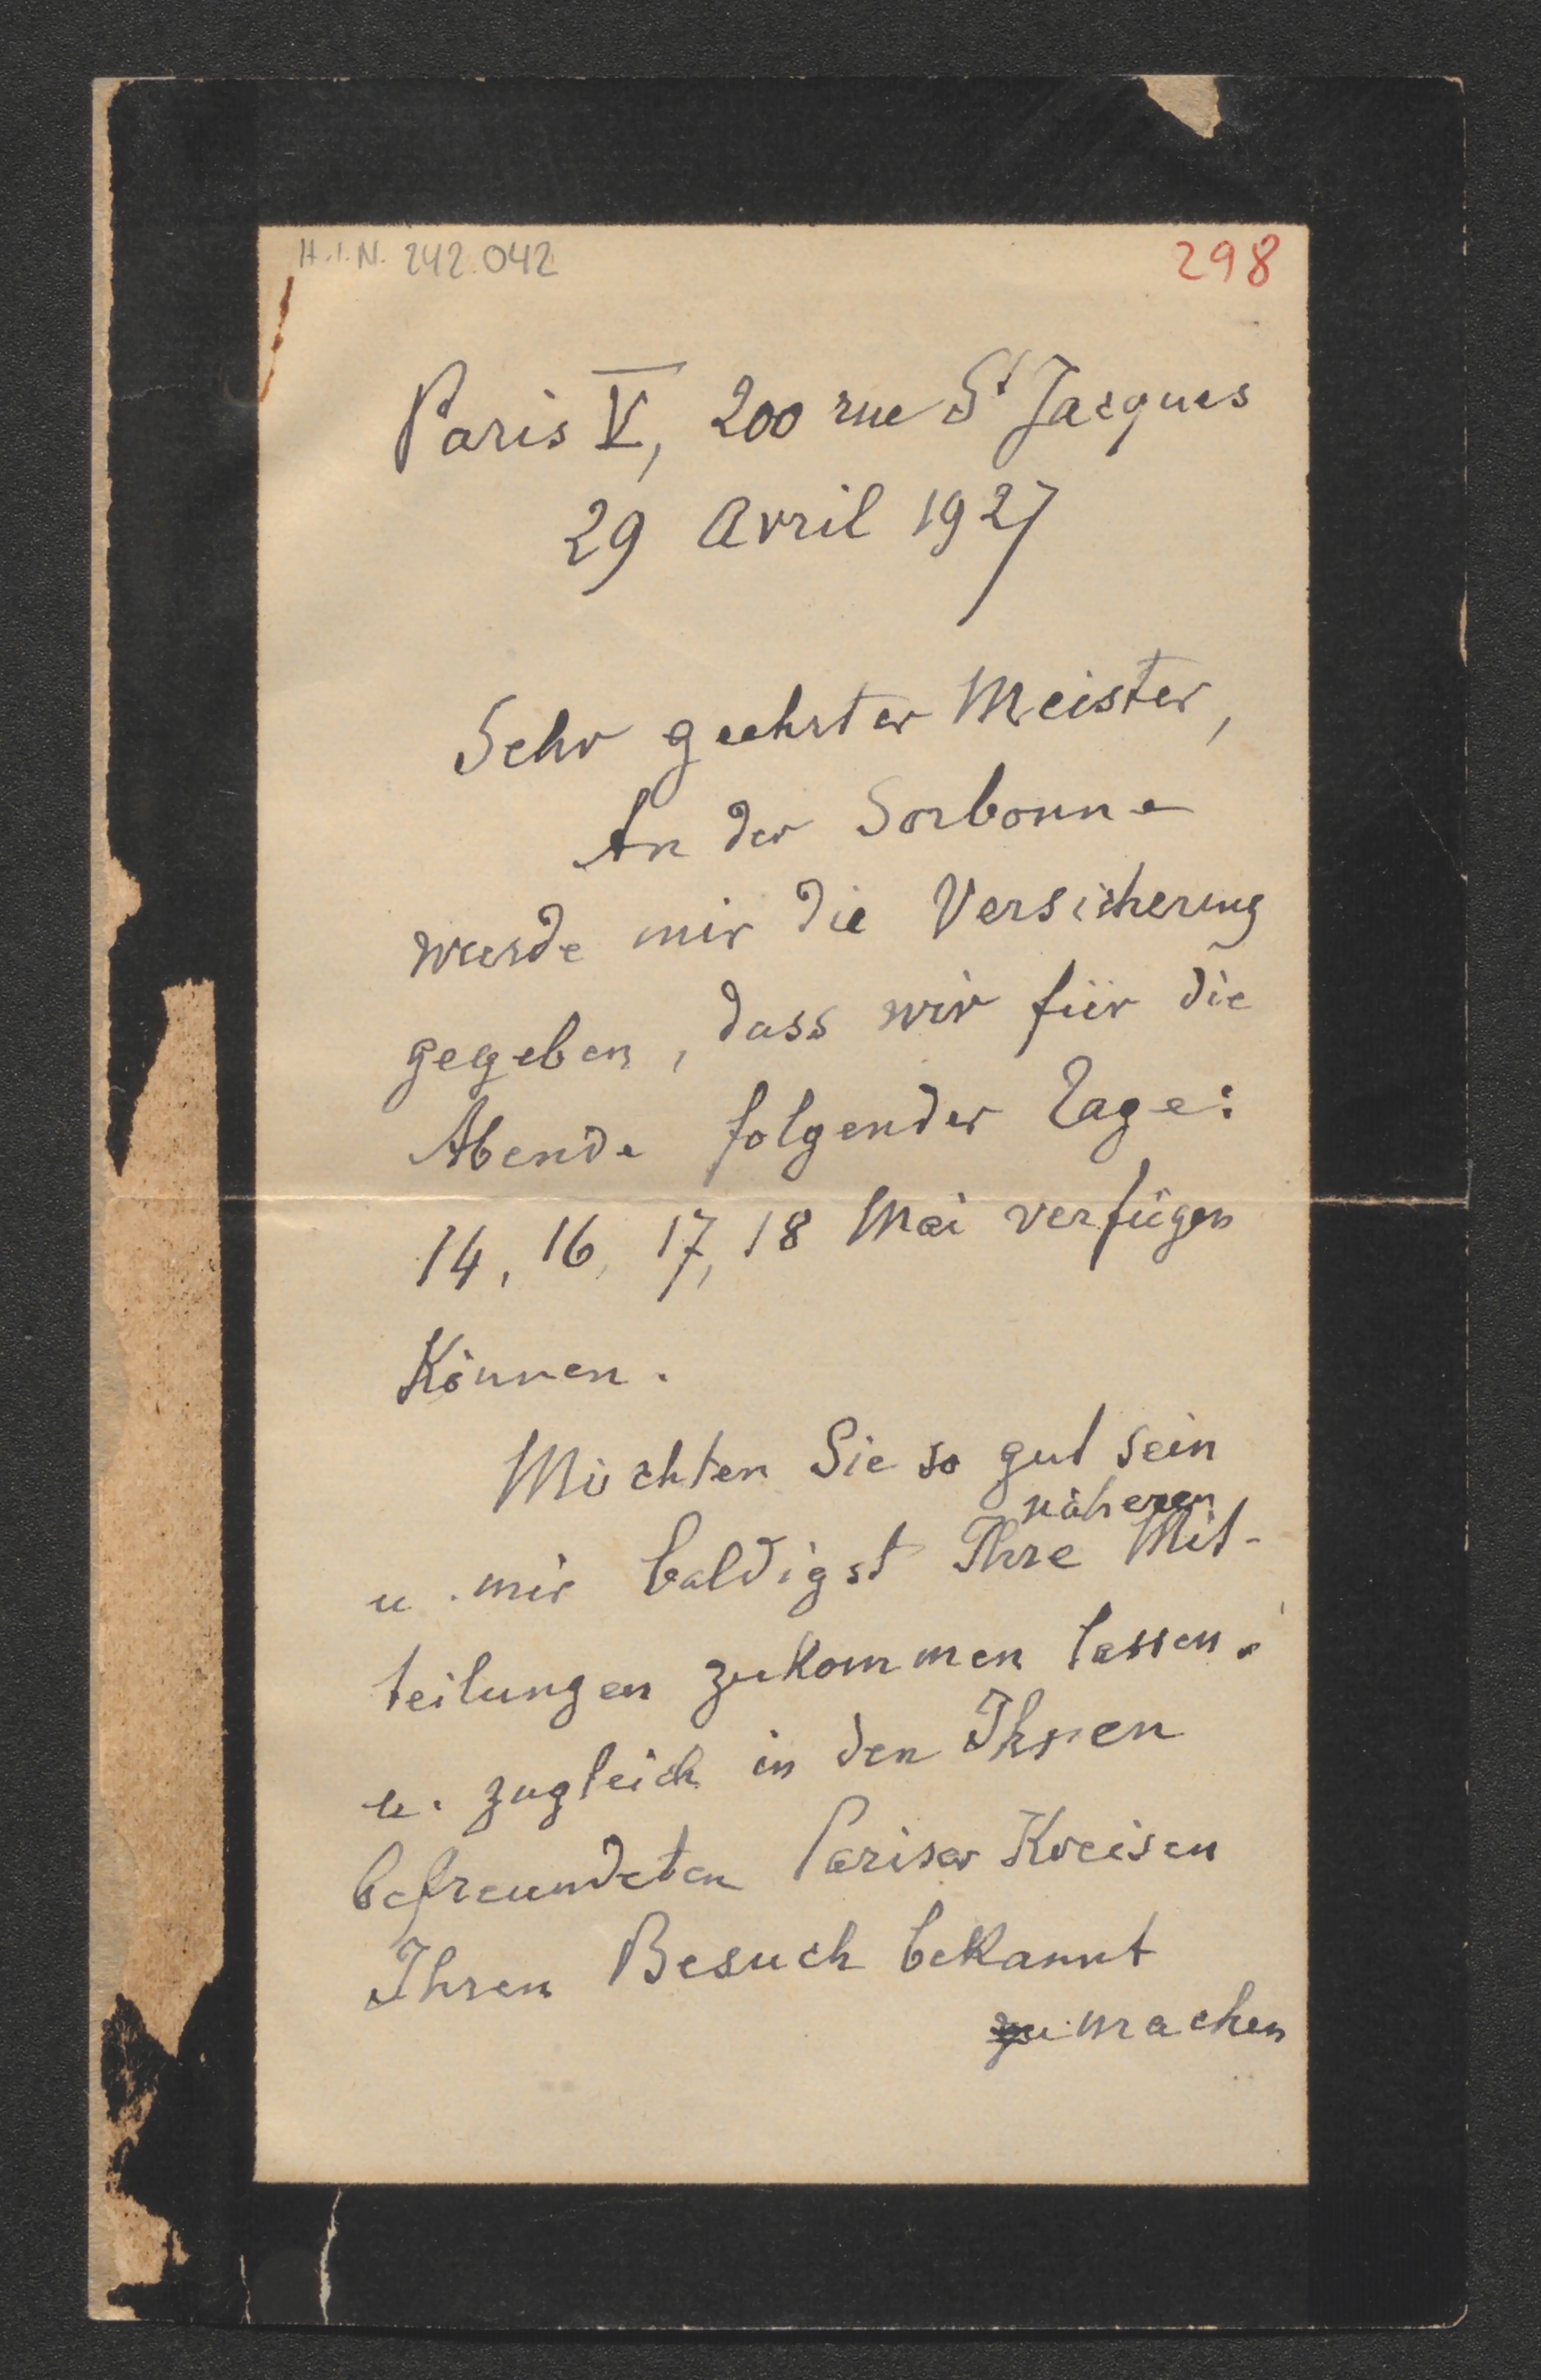 H.I.N. 242.042
298
Paris V, 200 rue St Jacques
29 Avril 1927
Sehr geehrter Meister,
An der Sorbonne
wurde mir die Versicherung
gegeben, dass wir für die
Abende folgender Tage:
14, 16, 17, 18 Mai verfügen
Können.
Möchten Sie so gut sein
näheren
u. mir baldigst Ihre Mit-
teilungen zukommen lassen.
u. zugleich in den Ihnen
befreundeten Pariser Kreisen
Ihren Besuch bekannt
zu machen